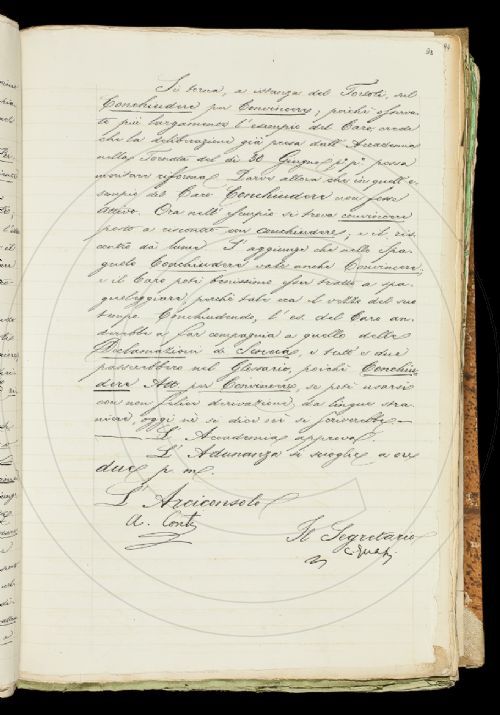 94
Si torna, a istanza del Tortoli, sul
Conchiudere per Convincere; poiché osserva-
to più largamente l'esempio del Caro, crede
che la deliberazione già presa dall'Accademia
nella Tornata del dì 30 Giugno p.p. possa
meritare riforma. Parve allora che in quell'e-
sempio del Caro Conchiudere non fosse
attivo. Ora nell'esempio si trova convincere
posto a riscontro con conchiudere, e il ris-
contro dà lume. S'aggiunge che nello spa-
gnuolo Conchiudere vale anche Convincere;
e il Caro poté benissimo esser tratto a spa-
gnoleggiare, perché tale era il vezzo del suo
tempo. Conchiudendo, l'es. del Caro an-
drebbe a far compagnia a quello delle
Declamazioni di Seneca, e tutt'e due
passerebbero nel Glossario, poiché Conchiu-
dere Att. per Convincere, se poté usarsi
con non felice derivazione, da lingue stra-
niere, oggi né si dice né si scriverebbe.—
— L'Accademia approva.
L'Adunanza si scioglie a ore
due p. m.
L'Arciconsolo
A. Conti
Il Segretario